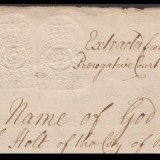 Extracted from
Prerogative Court
Name of God
of Holt of the City of